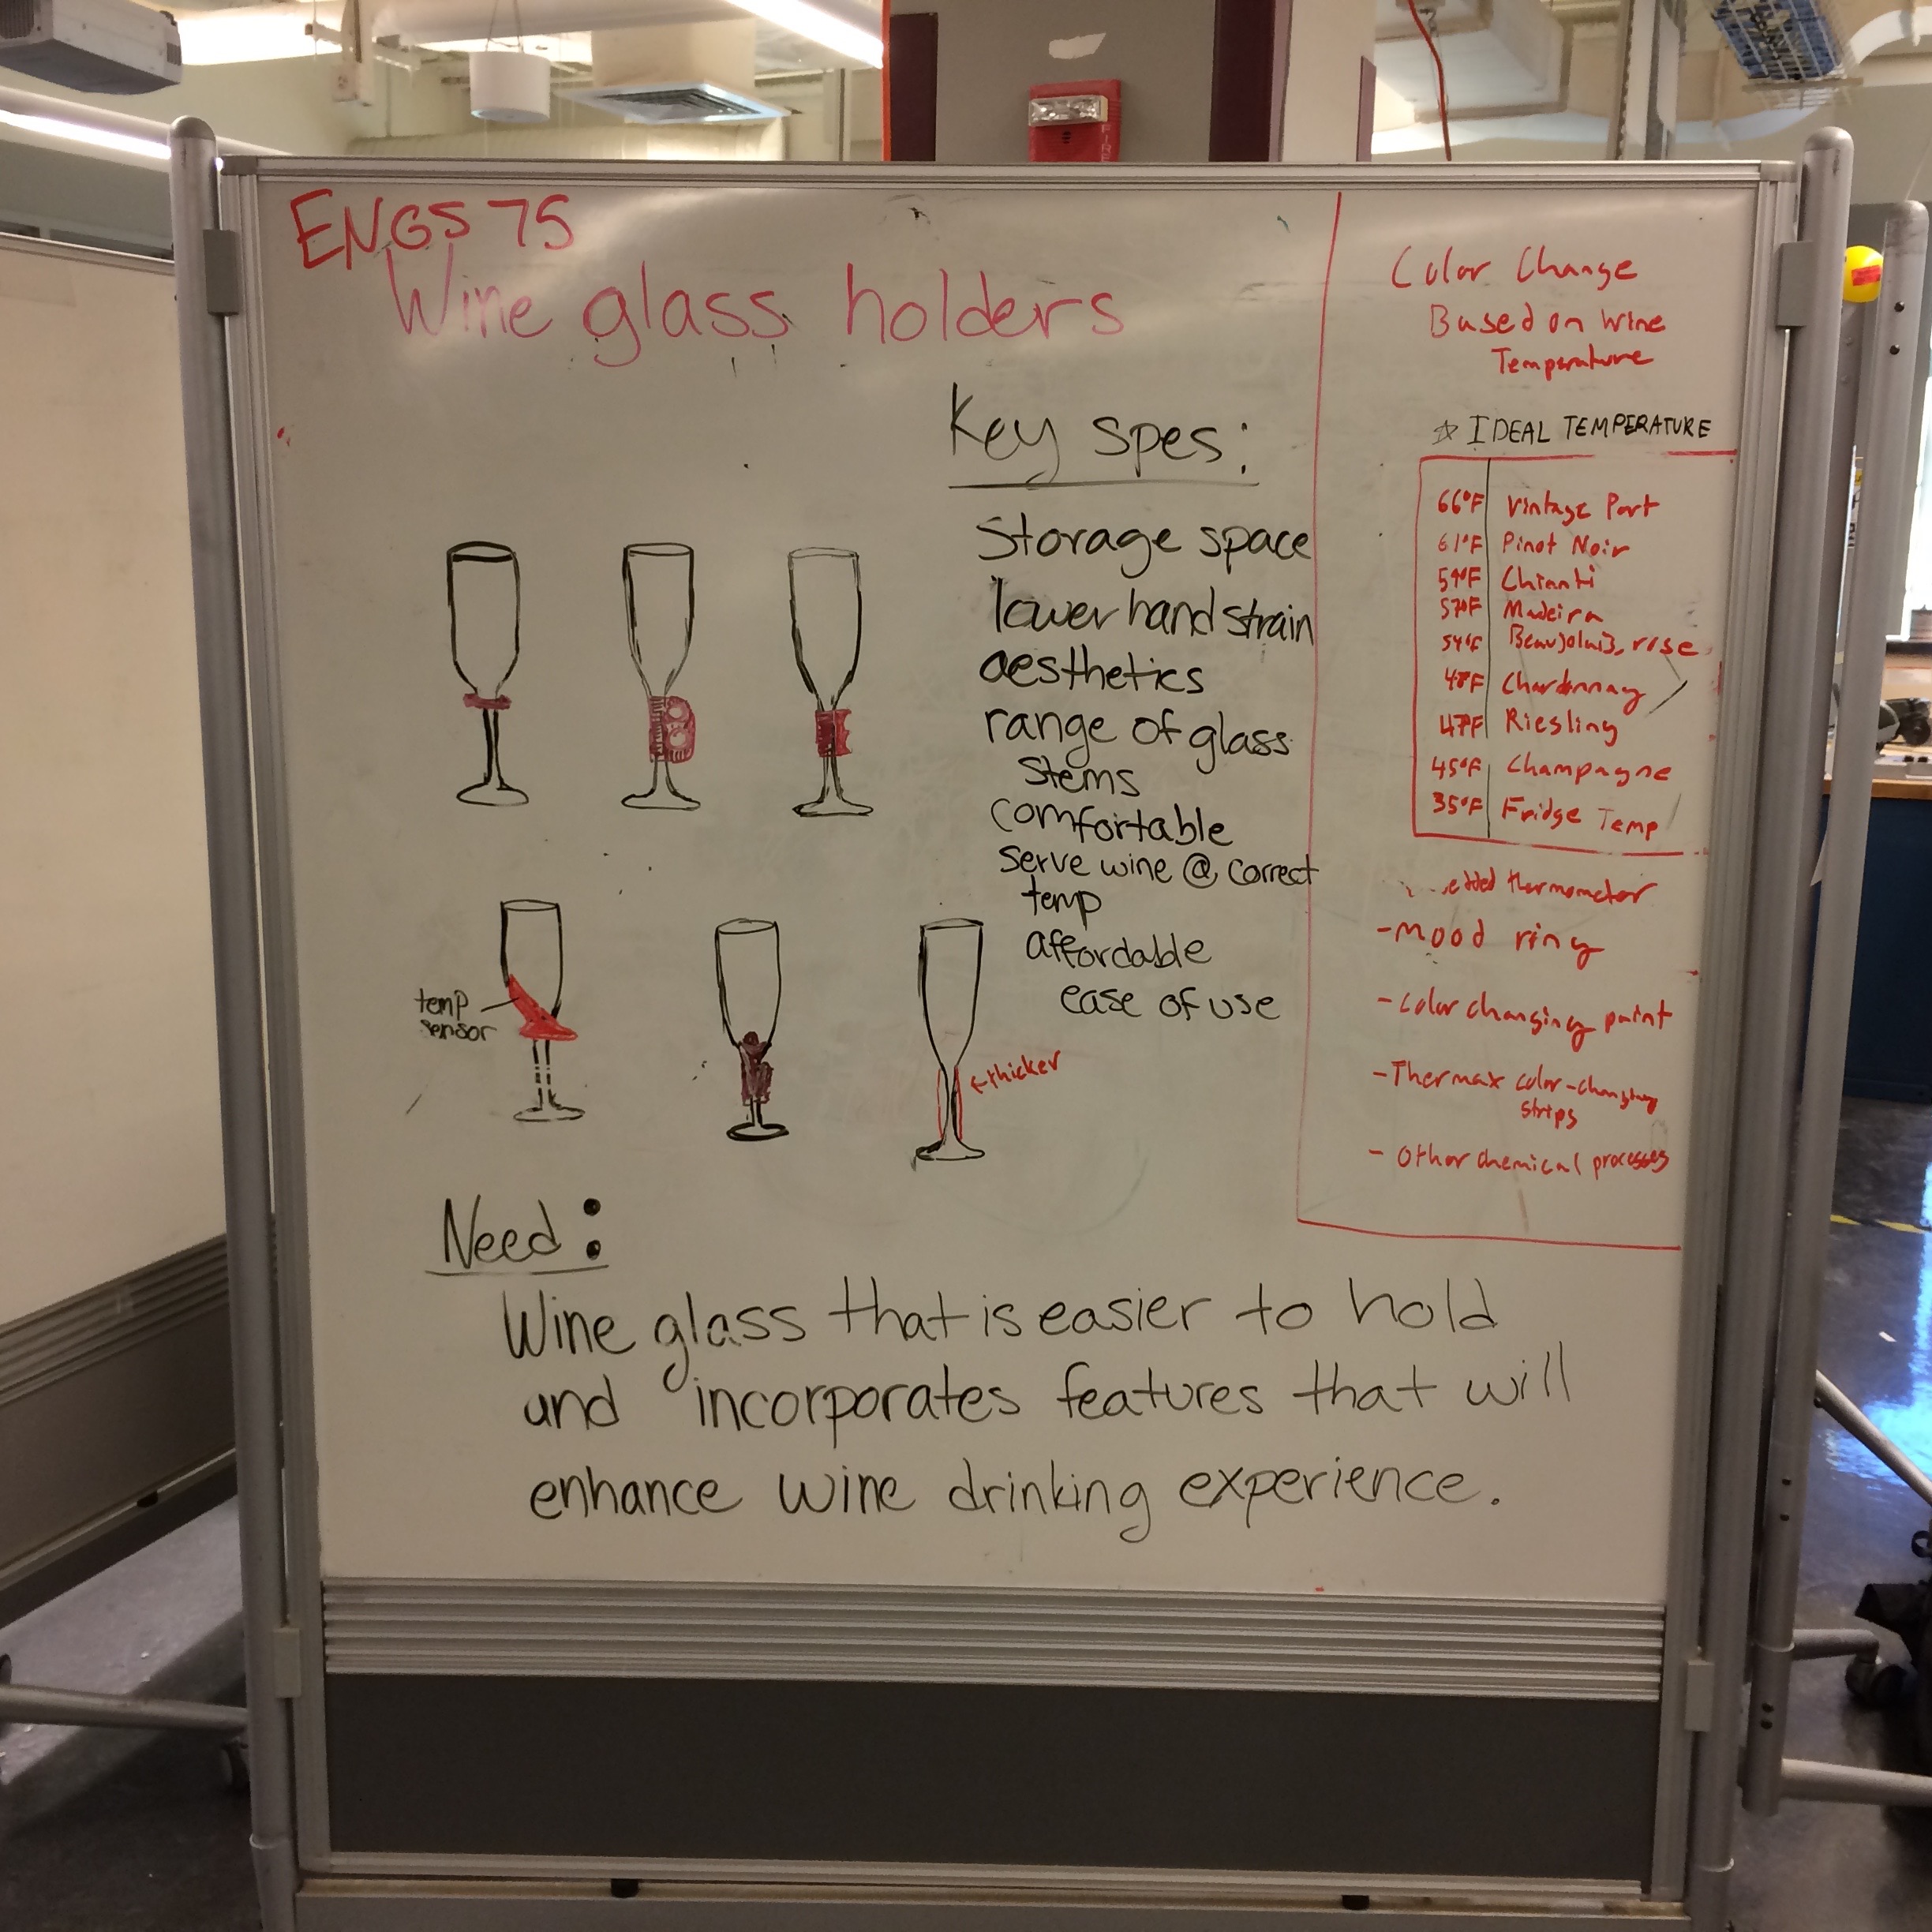 ENGS 75
Wine glass holders
Key spes:
Storage space
lower hand strain
aesthetics
range of glass
stems
comfortable
serve wine @ correct
temp
affordable
ease of use
temp
sensor
←thicker
Need:
Wine glass that is easier to hold
and incorporates features that will
enhance wine drinking experience.
Color Change
Based on Wine
Temperature
☆ IDEAL TEMPERATURE
66°F Vintage Port
61°F Pinot Noir
Chianti
57°F Madeira
54°F Beaujolais, rose
48°F Chardonnay
47°F Riesling
45°F Champagne
35°F Fridge Temp
thermometer
-mood ring
-color changing paint
-Thermax color-changing
strips
- Other chemical processes
FIRE